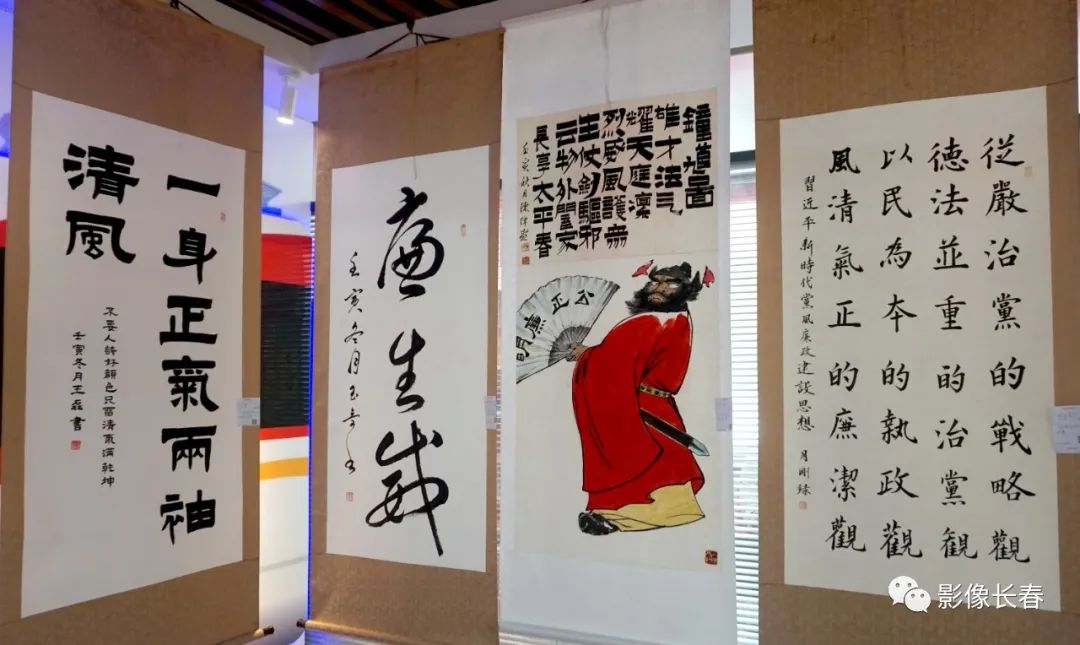 一身正氣兩袖
清風
不要人誇好顏色只留清氣滿乾坤
壬寅冬月王磊書
廉生威
壬寅冬月
鐘馗圖
雄才法气
天應凜
烈風護衆
生仗劍驅邪
云物外闔家
長享太平春
壬寅秋月陳
公正廉明
從嚴治黨的戰略觀
德法並重的治黨観
以民為本的執政觀
風清氣正的廉潔觀
習近平新時代黨風廉政建設思想 月剛録
影像长春